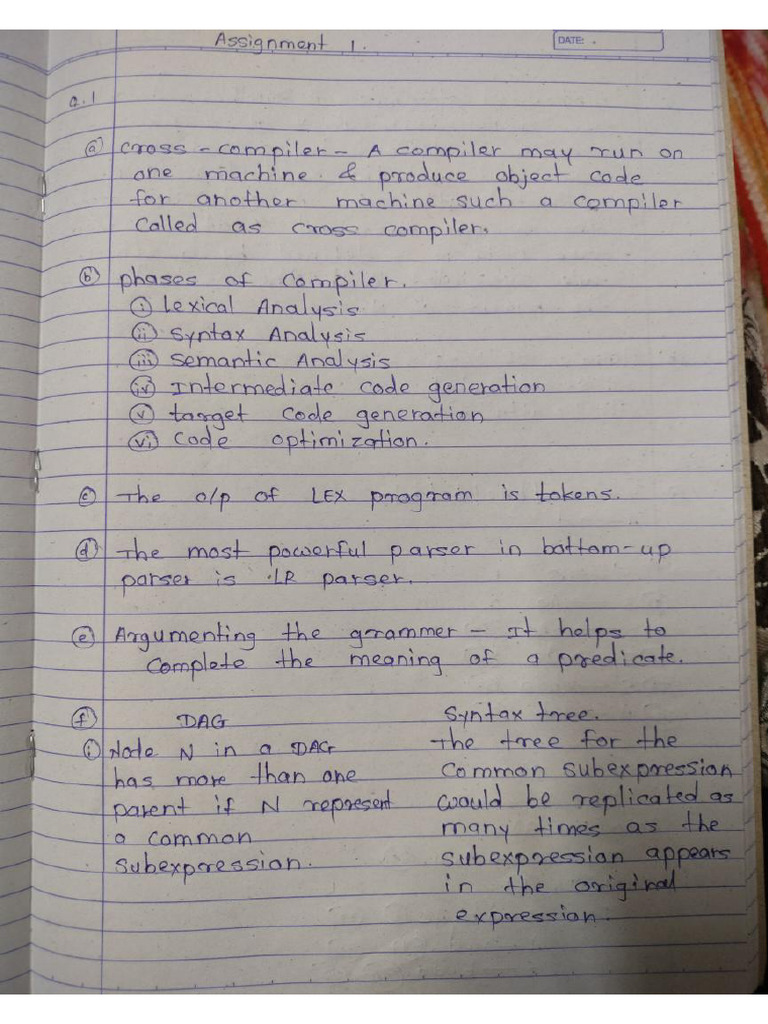 Assignment 1.
DATE:
Q.1
(a) Cross-compiler - A compiler may run on
one machine & produce object code
for another machine such a compiler
called as cross compiler.
(b) phases of compiler.
(i) Lexical Analysis
(ii) Syntax Analysis
(iii) Semantic Analysis
(iv) Intermediate code generation
(v) target code generation
(vi) Code optimization.
(c) The o/p of LEX program is tokens.
(d) The most powerful parser in bottom-up
parser is LR parser.
(e) Argumenting the grammer - It helps to
complete the meaning of a predicate.
(f) DAG Syntax tree.
(i) Node N in a DAG The tree for the
has more than one common subexpression
parent if N represent would be replicated as
a common many times as the
subexpression. subexpression appears
in the original
expression.